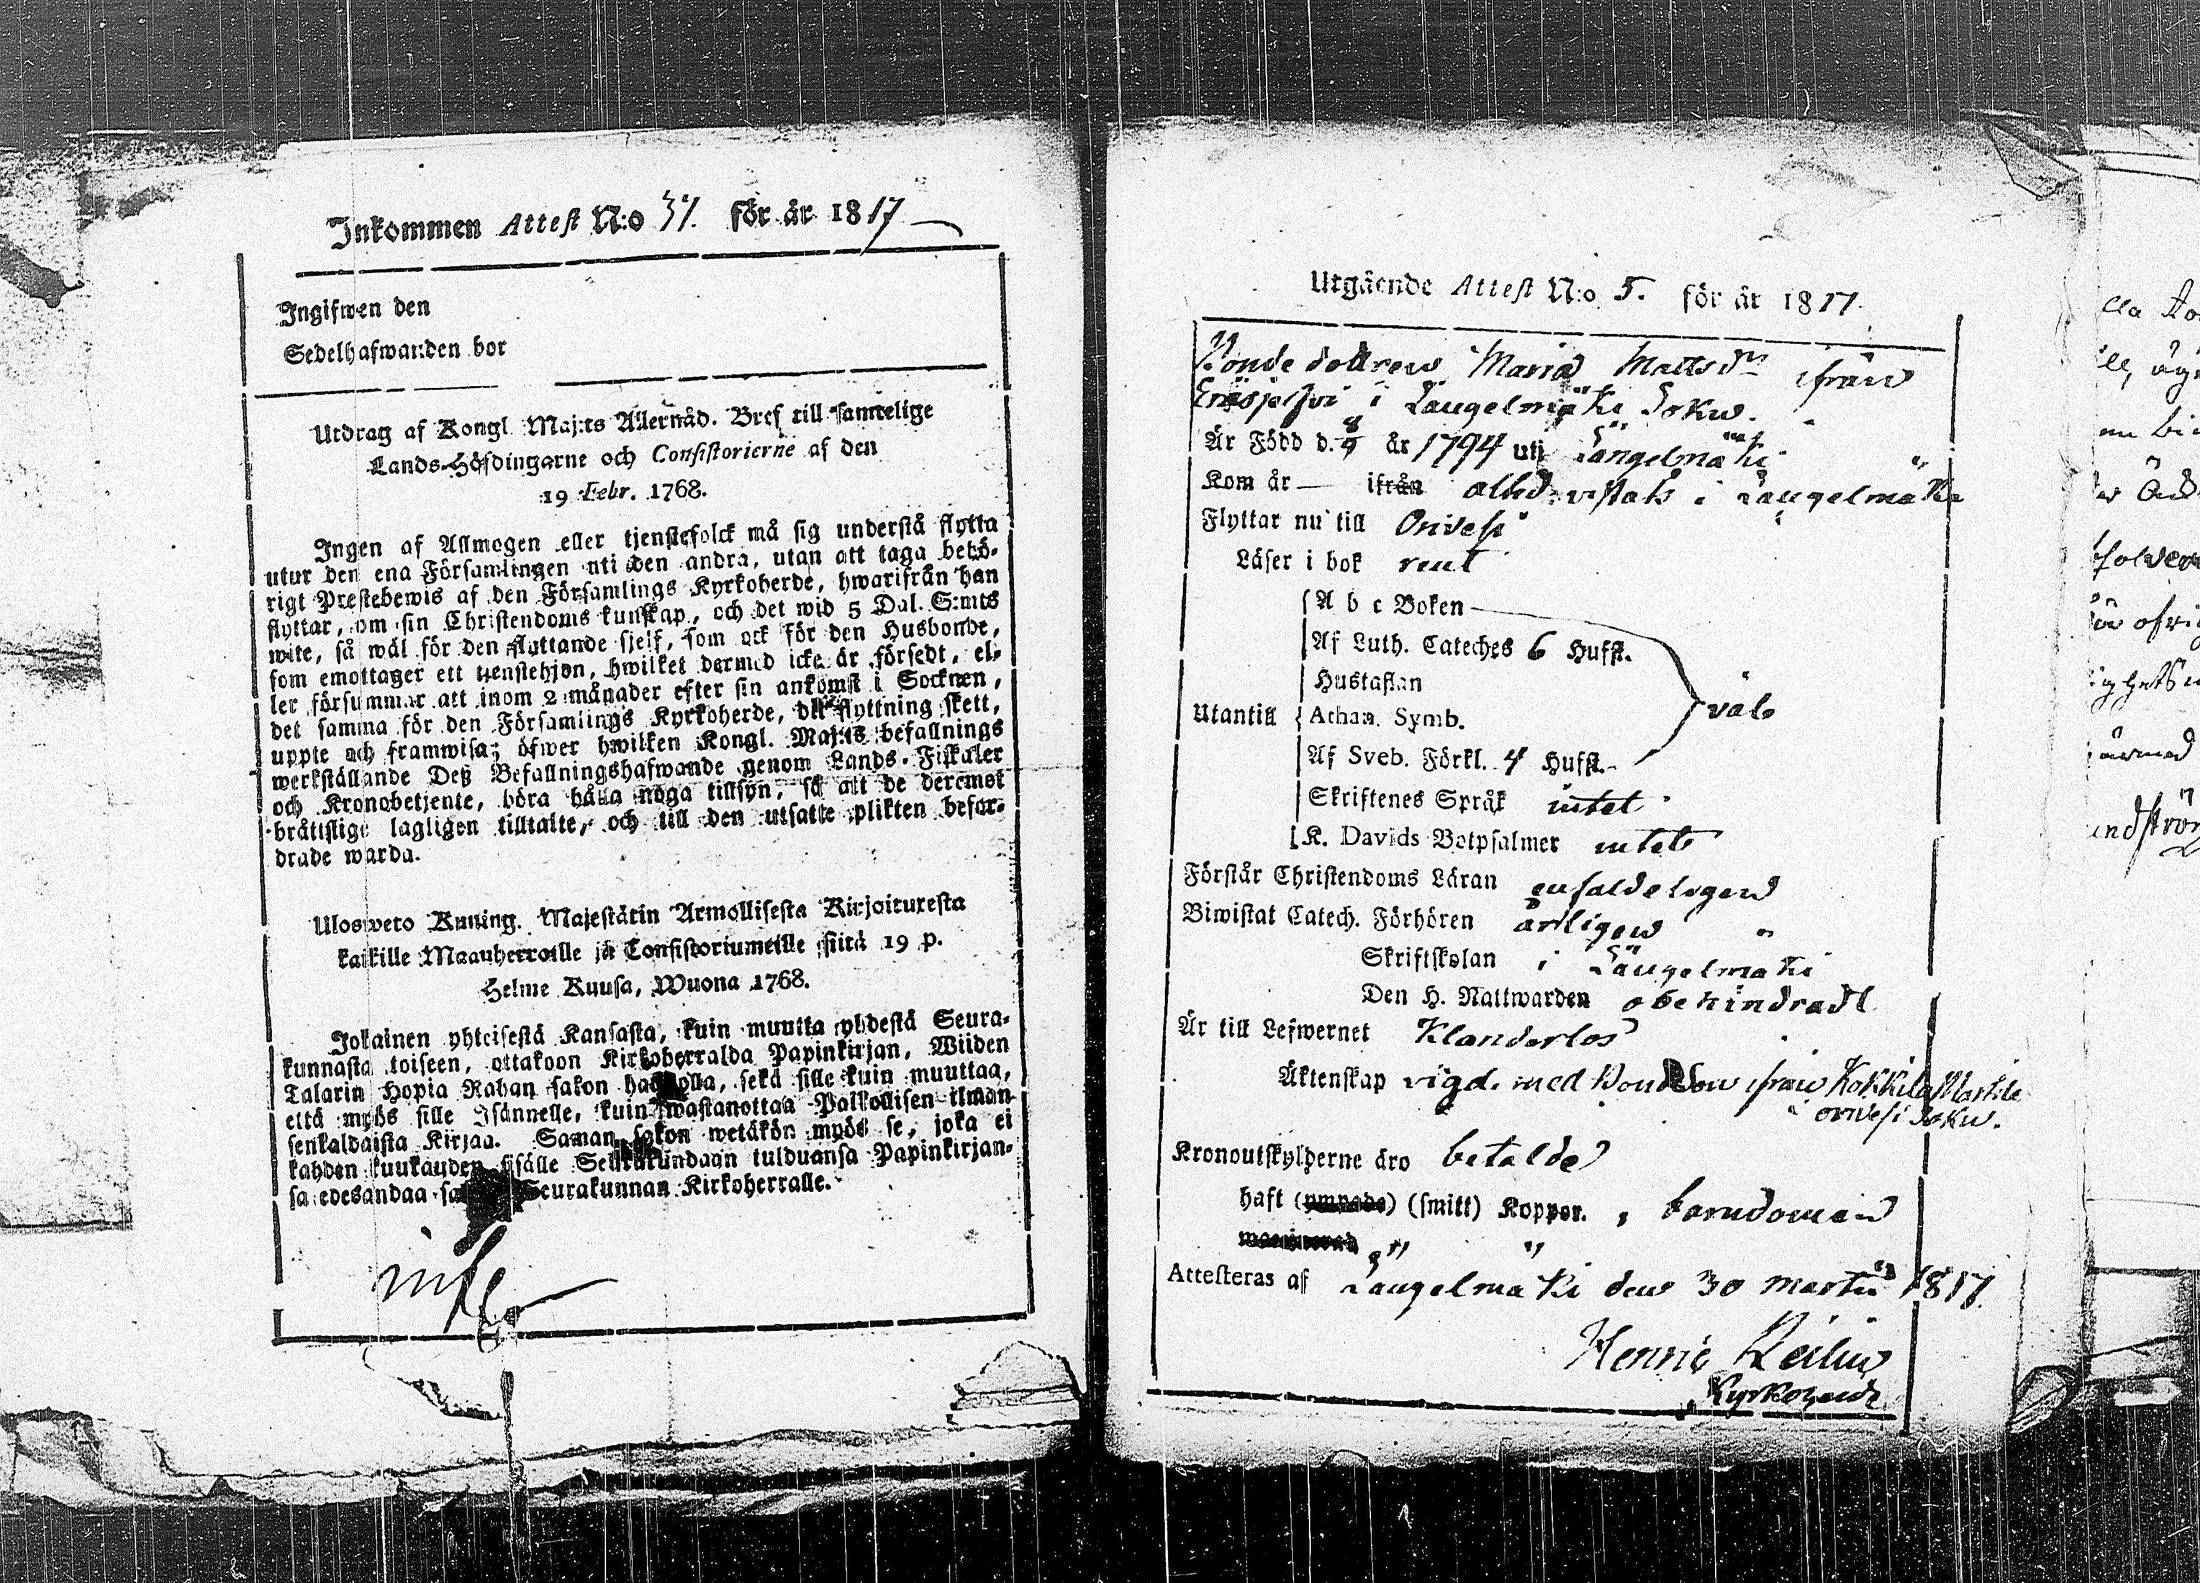 Inkommen Attest N:o 31. för år 1817
Ingifwen den
Sedelhafwanden bor
Utdrag af Kongl. Maj:ts Allernåd. Bref till samtelige
Lands-Höfdingarne och Consistorierne af den
19 Febr. 1768.
Ingen af Allmogen eller tjenstefolck må sig understå flytta
utur den ena Församlingen uti den andra, utan att taga behö-
rigt Prestebewis af den Församlings Kyrkoherde, hwarifrån han
flyttar, om sin Christendoms kunskap, och det wid 5 Dal. S:mts
wite, så wäl för den flyttande sjelf, som ock för den Husbonde,
som emottager ett tjenstehjon, hwilket dermed icke är försedt, el-
ler försummar att inom 2 månader efter sin ankomst i Socknen,
det samma för den Församlings Kyrkoherde, dit flyttning skett,
uppte och framwisa; öfwer hwilken Kongl. Maj:ts befallnings
werkställande Deß Befallningshafwande genom Lands-Fiskaler
och Kronobetjente, böra hålla noga tillsyn, så att de deremot
bråttslige lagligen tilltalte, och till den utsatte plikten befor-
drade warda.
Ulosweto Kuning. Majestätin Armollisesta Kirjoituxesta
kaikille Maanherroille ja Consistoriumeille siitä 19 p.
Helme Kuusa, Wuona 1768.
Jokainen yhteisestä Kansasta, kuin muutta yhdestä Seura-
kunnasta toiseen, ottakoon Kirkoherralda Papinkirjan, Wiiden
Talarin Hopia Rahan sakon , sekä sille kuin muuttaa,
että myös sille Isännelle, kuin wastanottaa Palkollisen ilman
senkaldaista Kirjaa. Saman sakon wetäkön myös se, joka ei
kahden kuukauden sisälle Seurakundaan tulduansa Papinkirjan-
sa edesandaa Seurakunnan Kirkoherralle.
Utgående Attest N:o 5. för år 1817
Bonde dottren Maria Mattsdr ifrån
Eräjärfvi i Längelmäki Sokn.
Är Född d. 8/9 år 1794 uti Längelmäki
Kom år — ifrån altid vistats i Längelmäki
Flyttar nu till Orivesi
Läser i bok rent
A b c Boken
Af Luth. Cateches 6 Hufst.
Hustaflan
Utantill Athan. Symb. väl
Af Sveb. Förkl. 4 Hufst.
Skriftenes Språk intet
K. Davids Botpsalmer intet
Förstår Christendoms Läran enfaldeligen
Biwistat Catech. Förhören årligen
Skriftskolan i Längelmäki
Den H. Nattwarden obehindradt
Är till Lefwernet Klanderlos
Äktenskap vigd med Bondson ifrån Kokkila Martila
Orivesi Sokn.
Kronoutskylderne äro betalde
haft (ympade) (smitt) Koppor. i barndomen
Attesteras af Längelmäki den 30 Martii 1817.
Kyrkoherde